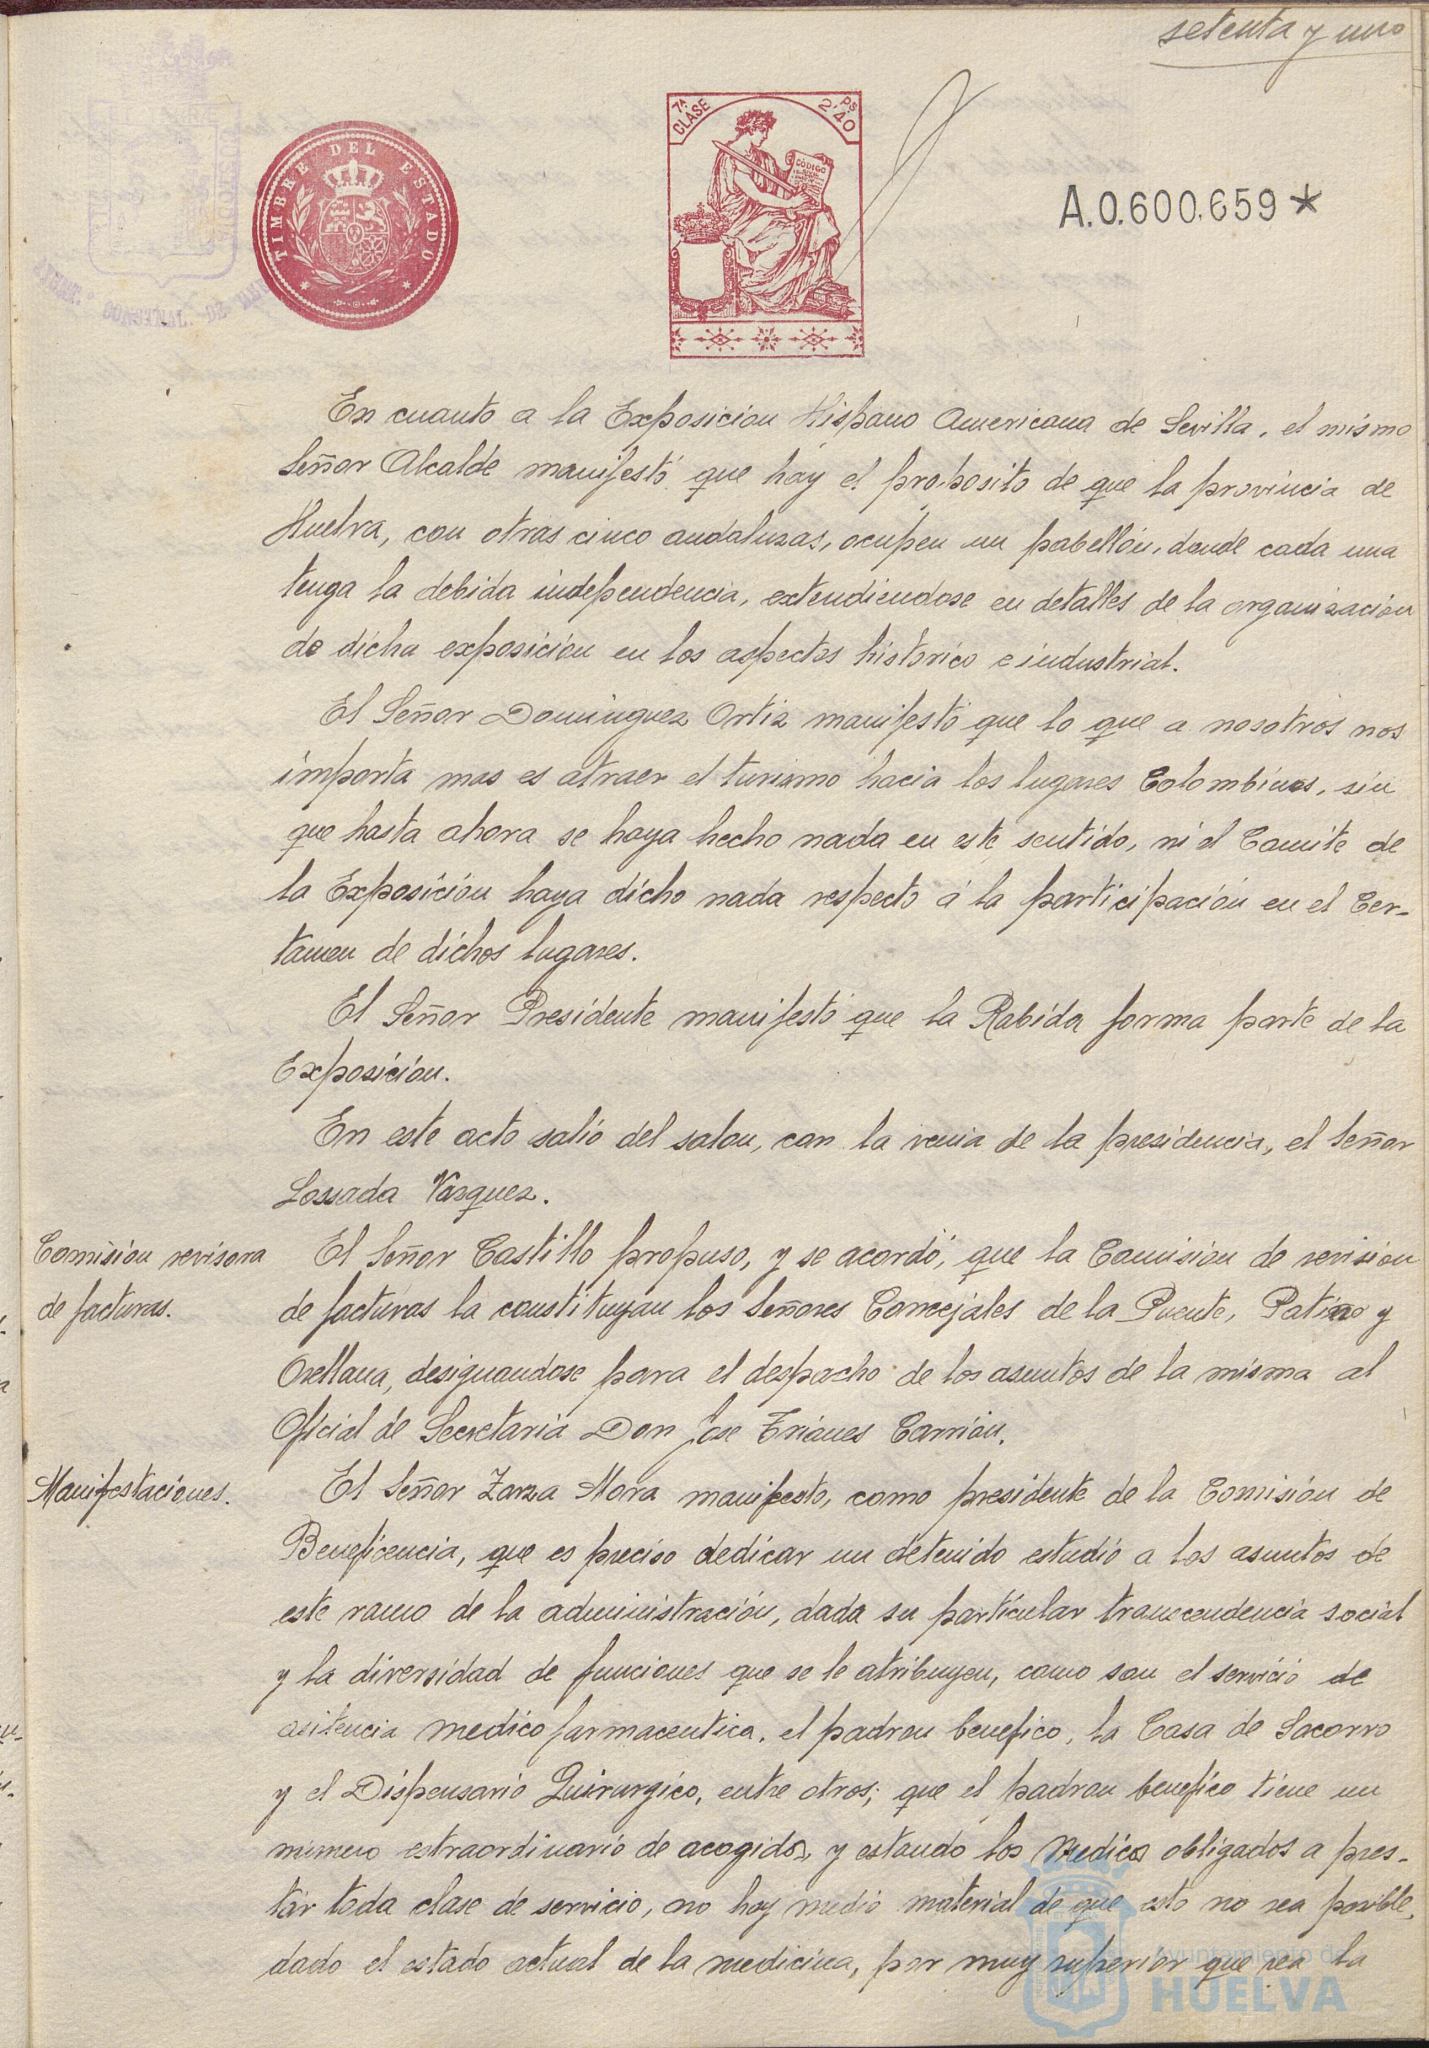 setenta y uno
TIMBRE DEL ESTADO
7ª CLASE
2'40 Ps
CÓDIGO
A.0.600.659*
En cuanto a la Exposicion Hispano Americana de Sevilla, el mismo
Señor Alcalde manifestó que hay el proposito de que la provincia de
Huelva, con otras cinco andaluzas, ocupen un pabellón, donde cada una
tenga la debida independencia, extendiendose en detalles de la organización
de dicha exposición en los aspectos historico e industrial.
El Señor Dominguez Ortiz manifestó que lo que a nosotros nos
importa mas es atraer el turismo hacia los lugares Colombinos, sin
que hasta ahora se haya hecho nada en este sentido, ni el Comite de
la Exposición haya dicho nada respecto á la participación en el Cer-
tamen de dichos lugares.
El Señor Presidente manifestó que la Rabida forma parte de la
Exposición.
En este acto salió del salon, con la venia de la presidencia, el Señor
Lossada Vazquez.
Comision revisora
de facturas.
El Señor Castillo propuso, y se acordó, que la Comision de revision
de facturas la constituyan los Señores Concejales de la Puente, Patino y
Orellana, designandose para el despacho de los asuntos de la misma al
Oficial de Secretaria Don Jose Trianes Carrión.
Manifestaciones.
El Señor Zarza Mora manifesto, como presidente de la Comisión de
Beneficencia, que es preciso dedicar un detenido estudio a los asuntos de
este ramo de la administración, dada su particular transcendencia social
y la diversidad de funciones que se le atribuyen, como son el servicio de
asitencia medico farmaceutica, el padron benefico, la Casa de Socorro
y el Dispensario Quirurgico, entre otros; que el padron benefico tiene un
numero estraordinario de acogidos, y estando los Medicos obligados a pres-
tar toda clase de servicio, no hay medio material de que esto no sea posible,
dado el estado actual de la medicina, por muy superior que sea la
Ayuntamiento de
HUELVA